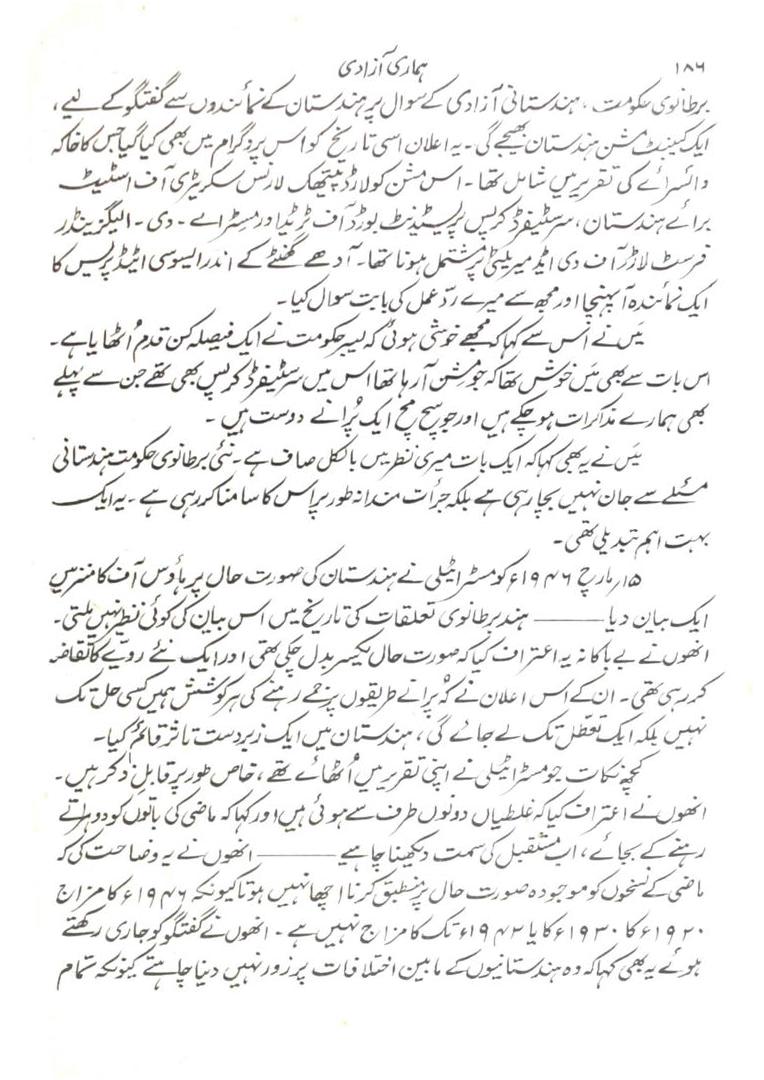 ۱۸۶ ہماری آزادی
برطانوی حکومت، ہندستانی آزادی کے سوال پر ہندستان کے نمائندوں سے گفتگو کے لیے،
ایک کیبنٹ مشن ہندستان بھیجے گی۔ یہ اعلان اسی تاریخ کو اس پروگرام میں بھی کیا گیا جس کا خاکہ
وائسرائے کی تقریر میں شامل تھا۔ اس مشن کو لارڈ پیتھک لارنس سکریٹری آف اسٹیٹ
برائے ہندستان، سر سٹیفرڈ کرپس پریسیڈنٹ بورڈ آف ٹریڈ اور مسٹر اے۔ دی۔ الیگزینڈر
فرسٹ لارڈ آف دی ایڈمیریلیٹی پر مشتمل ہونا تھا۔ آدھے گھنٹے کے اندر ایسوسی ایٹیڈ پریس کا
ایک نمائندہ آ پہنچا اور مجھ سے میرے ردّعمل کی بابت سوال کیا۔
میں نے اس سے کہا کہ مجھے خوشی ہوئی کہ لیبر حکومت نے ایک فیصلہ کن قدم اُٹھایا ہے۔
اس بات سے بھی میں خوش تھا کہ جو مشن آ رہا تھا اس میں سر سٹیفرڈ کرپس بھی تھے جن سے پہلے
بھی ہمارے مذاکرات ہو چکے ہیں اور جو سچ مچ ایک پُرانے دوست ہیں۔
میں نے یہ بھی کہا کہ ایک بات میری نظر میں بالکل صاف ہے۔ نئی برطانوی حکومت ہندستانی
مسئلے سے جان نہیں بچا رہی ہے بلکہ جرأت مندانہ طور پر اس کا سامنا کر رہی ہے۔ یہ ایک
بہت اہم تبدیلی تھی۔
۱۵ مارچ ۱۹۴۶ء کو مسٹر اٹیلی نے ہندستان کی صورت حال پر ہاؤس آف کامنز میں
ایک بیان دیا ——— ہند برطانوی تعلقات کی تاریخ میں اس بیان کی کوئی نظیر نہیں ملتی۔
انھوں نے بے باکانہ یہ اعتراف کیا کہ صورت حال یکسر بدل چکی تھی اور ایک نئے رویّے کا تقاضہ
کر رہی تھی۔ ان کے اس اعلان نے کہ پرانے طریقوں پر جمے رہنے کی ہر کوشش ہمیں کسی حل تک
نہیں بلکہ ایک تعطّل تک لے جائے گی، ہندستان میں ایک زبردست تاثر قائم کیا۔
کچھ نکات جو مسٹر اٹیلی نے اپنی تقریر میں اُٹھائے تھے، خاص طور پر قابلِ ذکر ہیں۔
انھوں نے اعتراف کیا کہ غلطیاں دونوں طرف سے ہوئی ہیں اور کہا کہ ماضی کی باتوں کو دوہراتے
رہنے کے بجائے، اب مستقبل کی سمت دیکھنا چاہیے ——— انھوں نے یہ وضاحت کی کہ
ماضی کے نسخوں کو موجودہ صورت حال پر منطبق کرنا اچھا نہیں ہوتا کیونکہ ۱۹۴۶ء کا مزاج
۱۹۲۰ء کا ۱۹۳۰ء کا یا ۱۹۴۲ء تک کا مزاج نہیں ہے۔ انھوں نے گفتگو کو جاری رکھتے
ہوئے یہ بھی کہا کہ وہ ہندستانیوں کے مابین اختلافات پر زور نہیں دینا چاہتے کیونکہ تمام